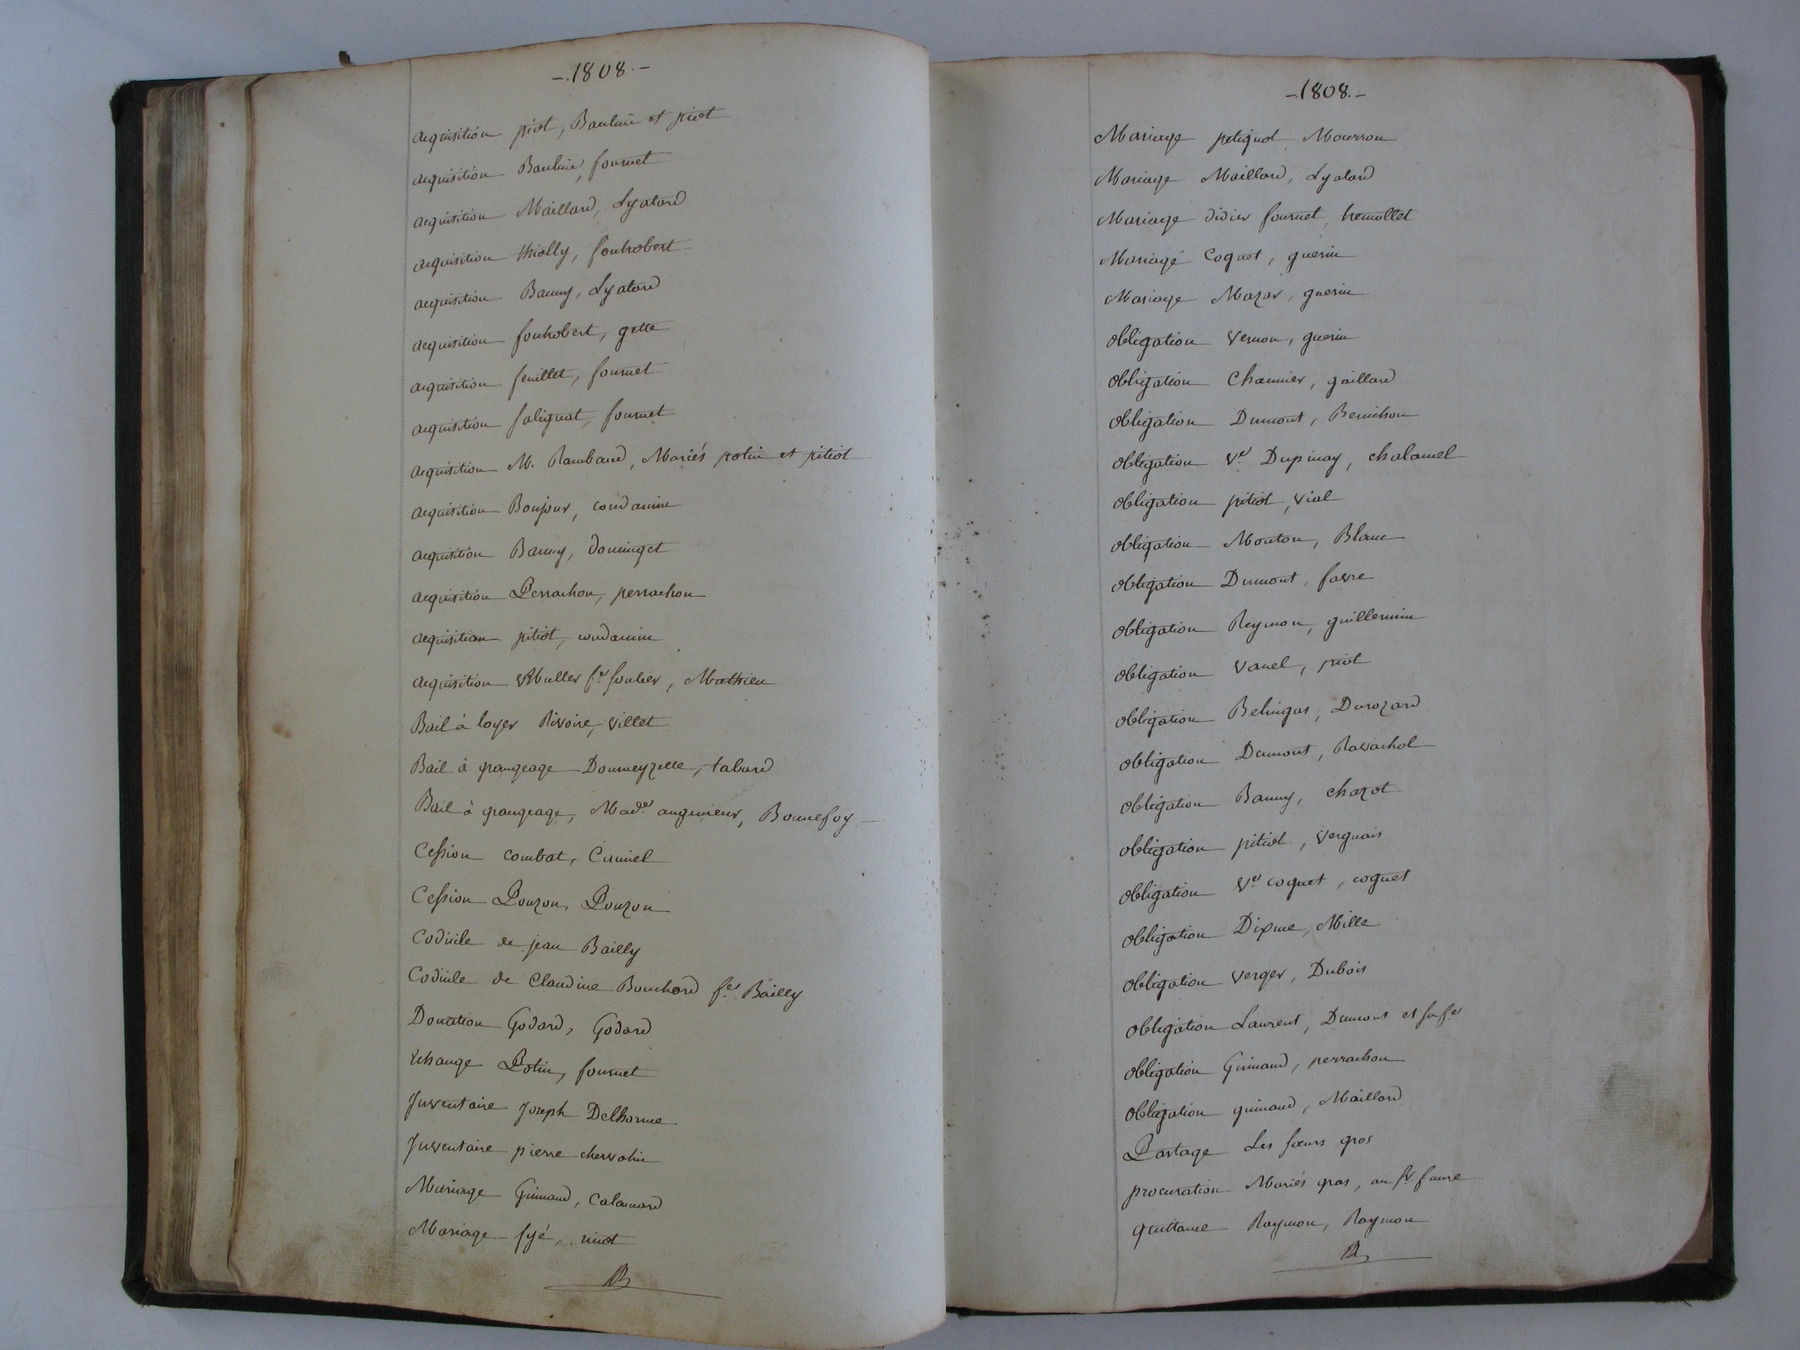 -.1808.-
acquisition piot, Baulin et piot
acquisition Baulin, fournet
acquisition Maillard, Lyatard
acquisition thiolly, fontrobert
acquisition Banny, Lyatard
acquisition fontrobert, gette
acquisition feuillet, fournet
acquisition salignat, fournet
acquisition M. Rambaud, Mariés potin et pitiot
acquisition Bonjour, condamin
acquisition Banny, dominget
acquisition Perrachon, perrachon
acquisition pitiot, condamin
acquisition fe Mathieu
Bail à loyer Rivoire, villet
Bail à grangeage Dourneyzelle, tabard
Bail à grangeage, Made angenieur, Bonnefoy
Cession combat,
Cession Pouzon, Pouzon
Codicile de jean Bailly
Codicile de Claudine Bouchard fe Bailly
Donation Godard, Godard
Echange Potin, fournet
Inventaire Joseph Delhorme
Inventaire pierre
Mariage Guinand, Calamard
Mariage fyé,
-.1808.-
Mariage petignot Mourron
Mariage Maillard, Lyatard
Mariage didier fournet, tremollet
Mariage Coquet, guerin
Mariage Mazar, guerin
obligation Vernon, guerin
obligation Channier, gaillard
obligation Dumont, Benichon
obligation Ve Dupinay, chalamel
obligation pitiot, vial
obligation Mouton, Blanc
obligation Dumont, favre
obligation Reymon, guillermin
obligation vanel, piot
obligation Belingas, Durozard
obligation Dumont, Ravachol
obligation Banny, chazot
obligation pitiot, vergnais
obligation Ve coquet, coquet
obligation Dixme, Mille
obligation verger, Dubois
obligation Laurent, Dumont et sa fe
obligation Guinand, perrachon
obligation guinand, Maillard
Partage Les sœurs gros
procuration Mariés gras, au sr faure
quittance Raymon, Raymon